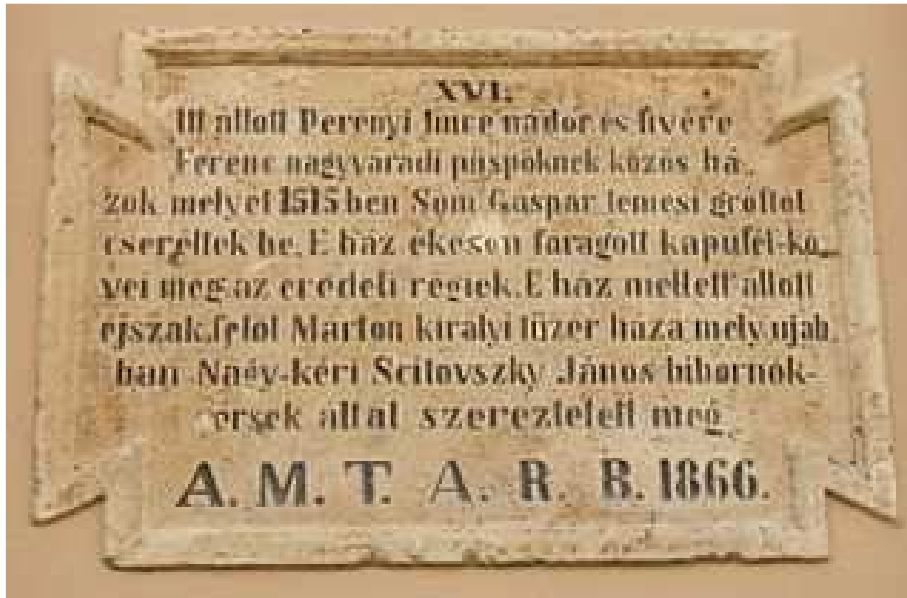 XVI.
Itt állott Perényi Imre nádor és fivére
Ferenc nagyváradi püspöknek közös há-
zok melyet 1515 ben Som Gáspár temesi gróftol
cseréltek be. E ház ékesen faragott kapufél-kö-
vei még az eredeti régiek. E ház mellett állott
éjszak felöl Márton királyi tüzér háza mely ujab
ban Nagy-kéri Scitovszky János bibornok-
érsek által szereztetett meg
A. M. T. A. R. B. 1866.